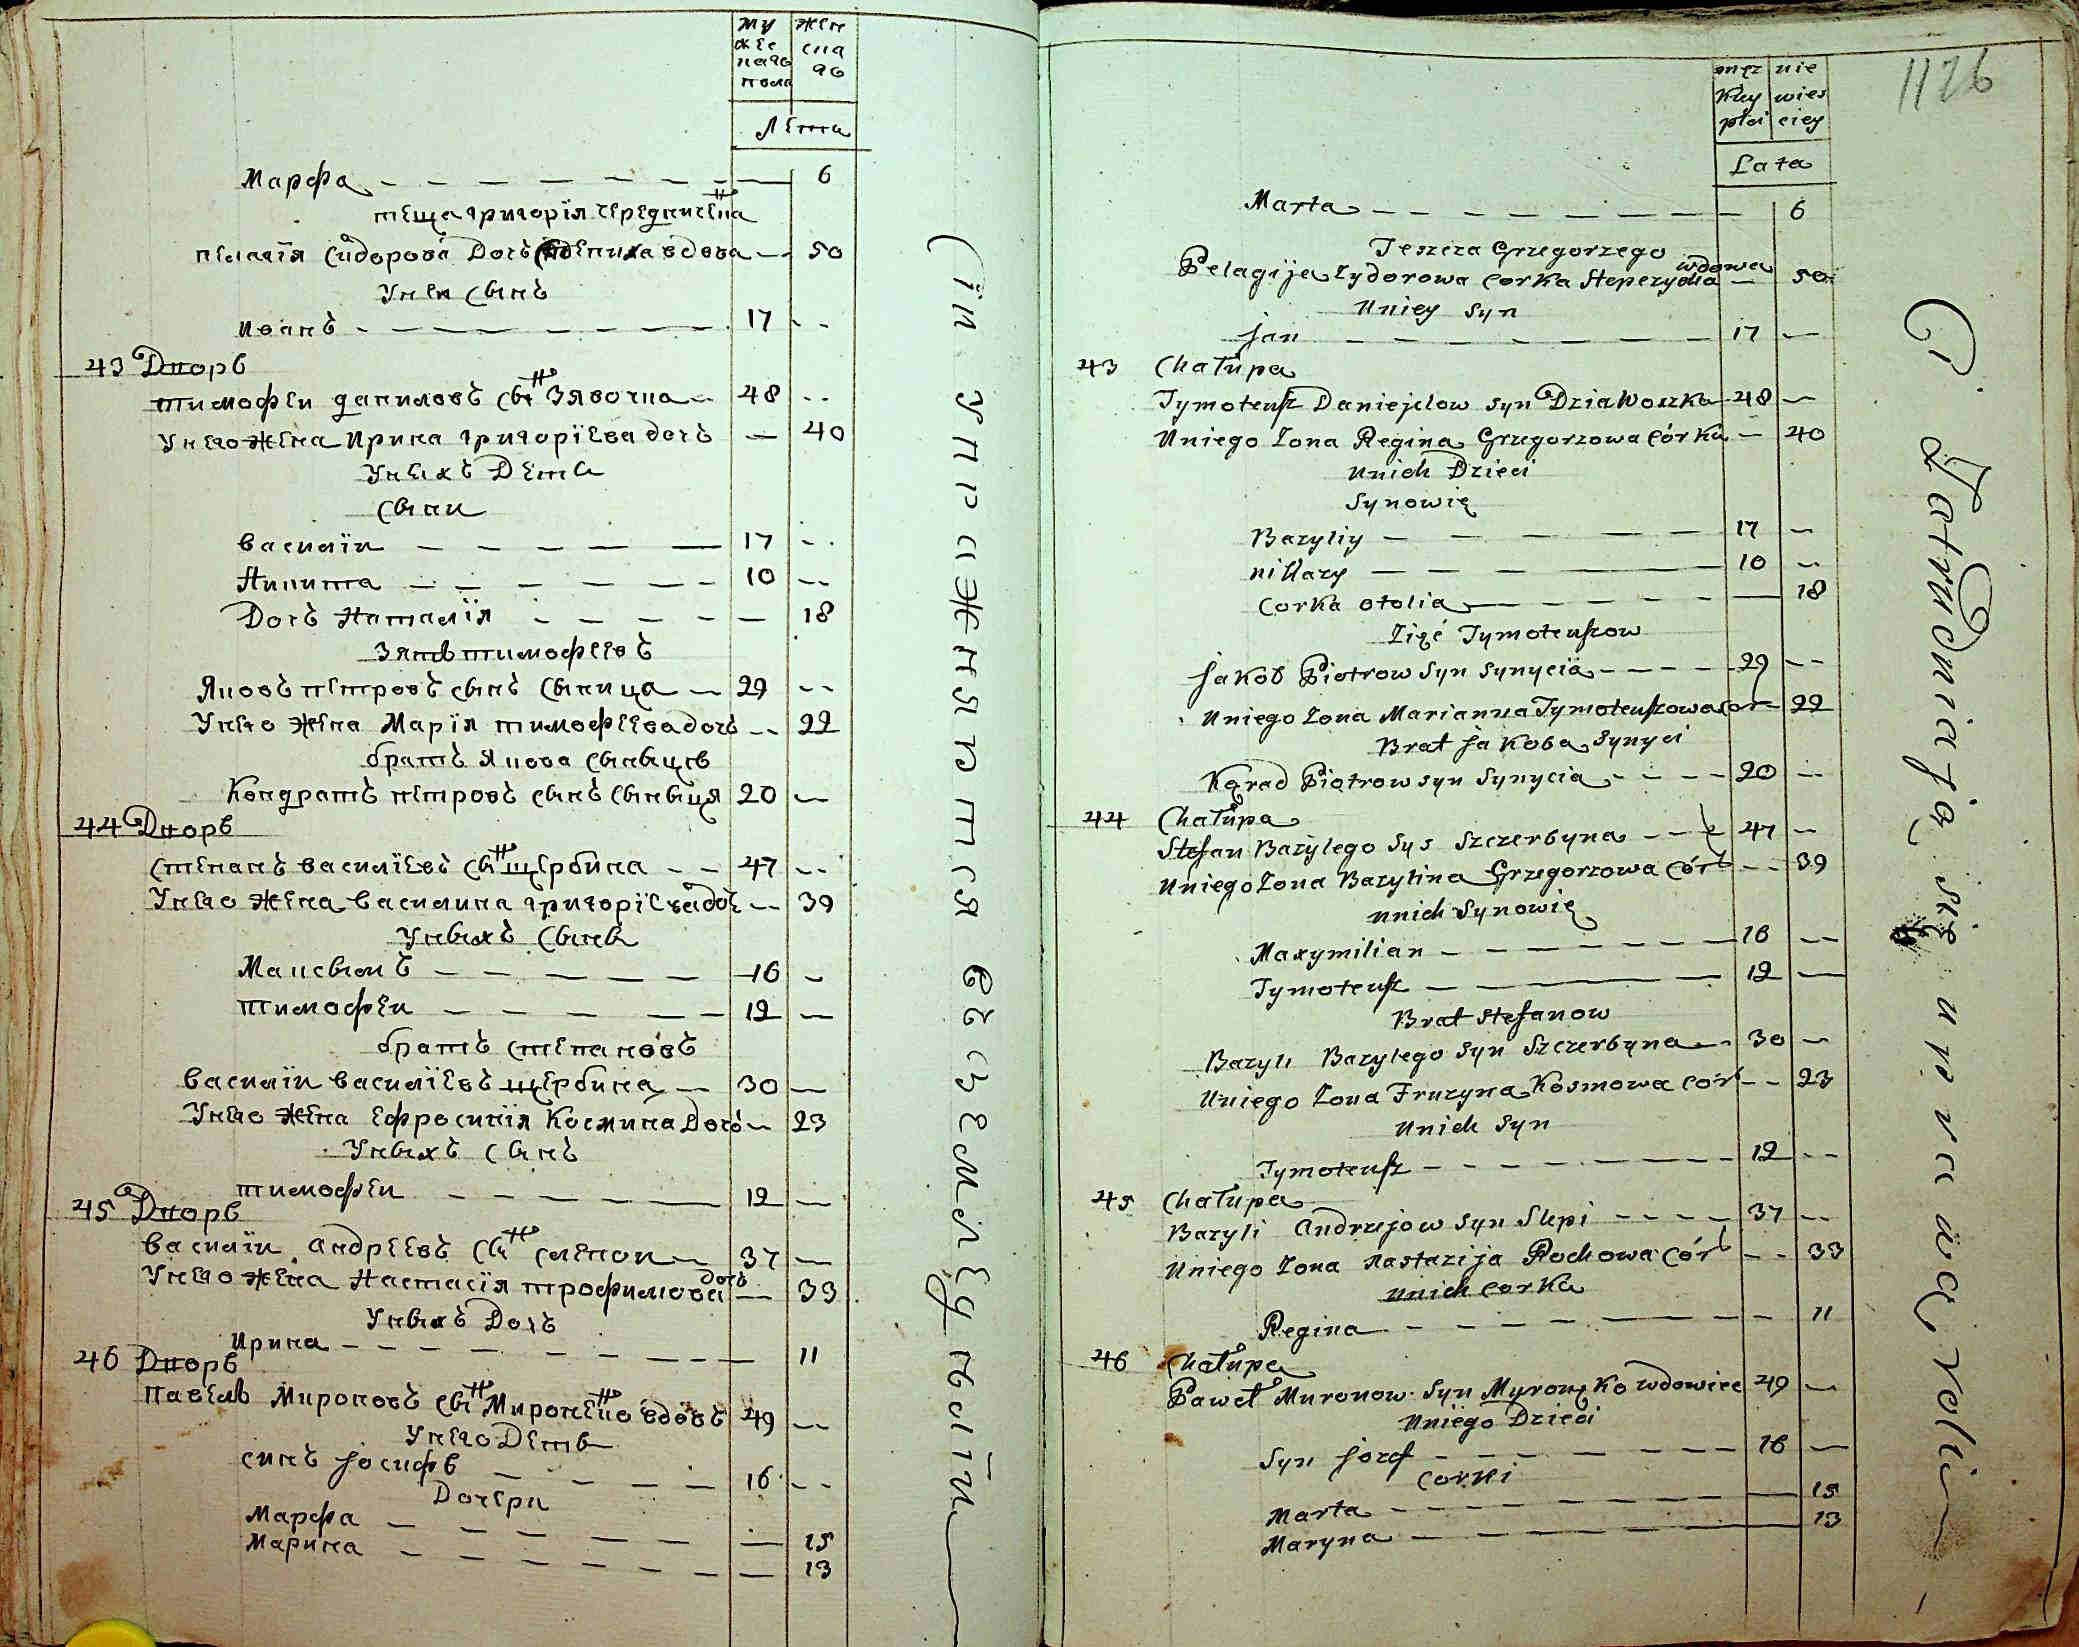 му жен
жес ска
каго го
пола
Лета
Марфа 6
теща Григорія Чередниченка
пелагія Сидорова Дочь вдова 50
У неи сынъ
Иванъ 17
43 Дворъ
тимофеи даниловъ сынъ Зявочка 48
У него жена Ирина григоріева дочь 40
У нихъ Дети
Сыни
василіи 17
Никита 10
Дочь Наталія 18
Зять тимофеевъ
Яковъ петровъ сынъ Сыница 29
У него жена Марія тимофеева дочь 22
братъ Якова Сыныцы
Кондратъ петровъ сынъ Сыныця 20
44 Дворъ
степанъ василіевъ сынъ щербина 47
У него жена василина григоріева дочь 39
У ныхъ Сыны
Максымъ 16
тимофеи 12
братъ степановъ
василіи василіевъ щербина 30
У него жена ефросинія Космина Дочь 23
У ныхъ Сынъ
тимофеи 12
45 Дворъ
василіи андреевъ сынъ слепои 37
У него жена Настасія трофимова дочь 33
У ныхъ Дочь
Ирина 11
46 Дворъ
павелъ Мироновъ сынъ Мироненко вдовъ 49
У него Дети
синъ Іосифъ 16
Дочери
Марфа 15
Марина 13
Сіи упражняются въ земледеліи
1126
męz nie
kiey wies
płci ciey
Lata
Marta 6
Teszcza Grzegorzego
Pelagija Zydorowa Corka Steperycha wdowa 50
Uniey Syn
Jan 17
43 Chałupa
Tymoteusz Daniejelow Syn Dziawoczka 48
Uniego Zona Regina Grzegorzowa Córka 40
Unich Dzieci
Synowię
Bazyliy 17
nikłazy 10
Corka otolia 18
Zięć Tymoteuszow
Jakob Piotrow Syn Synycia 29
Uniego Zona Marianna Tymoteuszowa Cor 22
Brat Jakoba Synyci
Kąrad Piotrow Syn Synycia 20
44 Chałupa
Stefan Bazylego Sys Szczerbyna 47
Uniego Zona Bazylina Grzegorzowa Cór 39
Unich Synowię
Maxymilian 16
Tymoteusz 12
Brat Stefanow
Bazyli Bazylego Syn Szczerbyna 30
Uniego Zona Fruzyna Kosmowa Cór 23
Unich Syn
Tymoteusz 12
45 Chałupa
Bazyli Andrzejow Syn Slepi 37
Uniego Zona Nastazija Rochowa Cór 33
Unich Corka
Regina 11
46 Chałupa
Paweł Muronow Syn Myronęko wdowiec 49
Uniego Dzieci
Syn Jozef 16
Corki
Marta 15
Maryna 13
Ci Zatrudniają się uprawą roli